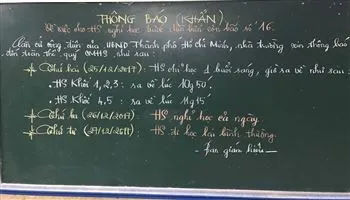 THÔNG BÁO (KHẨN)
Về việc cho HS nghỉ học trước diễn biến cơn bão số 16.
Căn cứ công điện của UBND Thành phố Hồ Chí Minh, nhà trường xin thông báo
đến toàn thể quý CMHS như sau:
Thứ hai (25/12/2017): HS chỉ học 1 buổi sáng, giờ ra về như sau:
. HS Khối 1, 2, 3: ra về lúc 10g50.
. HS Khối 4, 5: ra về lúc 11g15
Thứ ba (26/12/2017) HS nghỉ học cả ngày.
Thứ tư (27/12/2017): HS đi học lại bình thường.
- Ban giám hiệu -